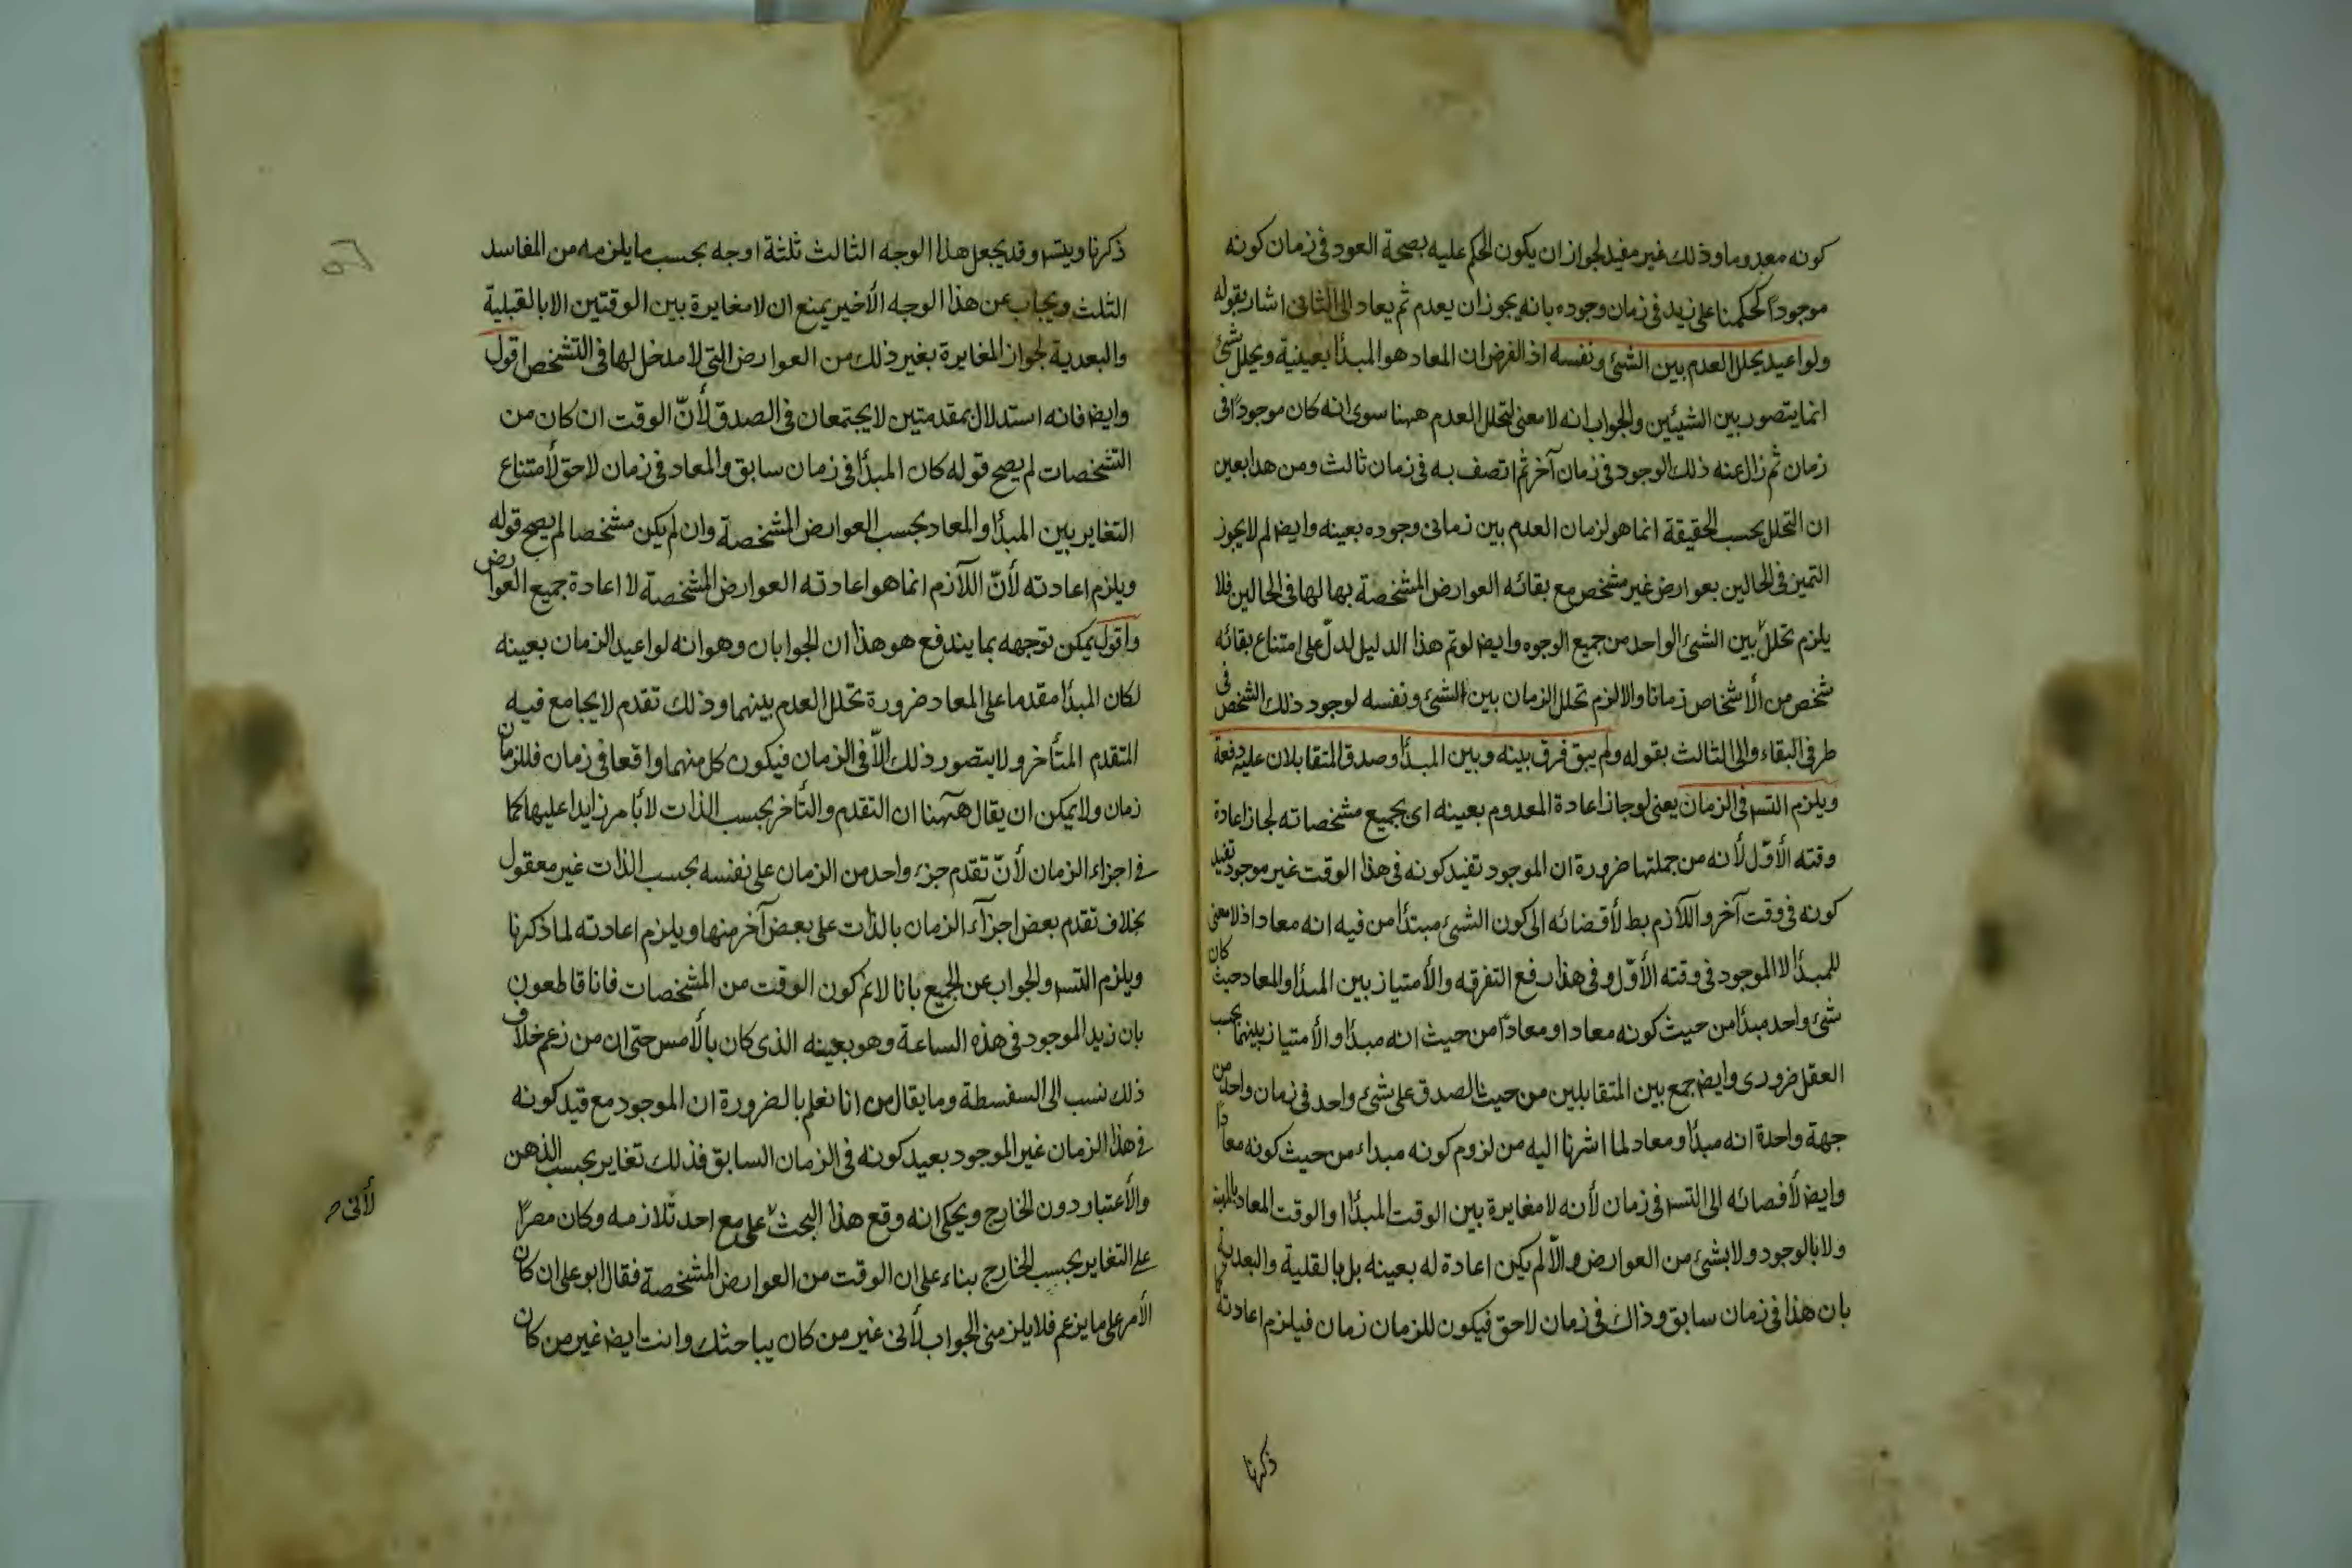 كونه معدوما وذلك غير مفيد لجواز ان يكون الحكم عليه بصحة العود فى زمان كونه
موجوداً كحكمنا على زيد فى زمان وجوده بانه يجوز ان يعدم ثم يعاد الى الثانى اشار بقوله
ولو اعيد يخلل العدم بين الشئ ونفسه اذ الفرض ان المعاد هو المبدأ بعينية ويخلل شئ
انما يتصور بين الشيئين والجواب انه لا معنى لتخلل العدم ههنا سوى انه كان موجوداً فى
زمان ثم زال عنه ذلك الوجود فى زمان آخر ثم اتصف به فى زمان ثالث ومن هذا بعين
ان التخلل بحسب الحقيقة انما هو لزمان العدم بين زمانى وجوده بعينه وايض لم لا يجوز
التميز فى الحالين بعوارض غير مشخص مع بقائه العوارض المشخصة بها لها فى الحالين فلا
يلزم تخلل بين الشئ الواحد من جميع الوجوه وايض لو تم هذا الدليل لدلّ على امتناع بقائه
شخص من الأشخاص زمانا والا لزم تخلل الزمان بين الشئ ونفسه لوجود ذلك الشخص فى
طرفى البقاء والى الثالث بقوله ولم يبق فرق بينه وبين المبدأ وصدق المتقابلان عليه دفعة
ويلزم التس فى الزمان يعنى لو جاز اعادة المعدوم بعينه اى بجميع مشخصاته لجاز اعادة
وقته الأوّل لأنه من جملتها ضرورة ان الموجود تفيد كونه فى هذا الوقت غير موجود تفيد
كونه فى وقت آخر واللآزم بط لأقضائه الى كون الشئ مبتدأ من فيه انه معادا اذ لا معنى
للمبدأ الا الموجود فى وقته الأوّل وفى هذا رفع التفرقه والأمتياز بين المبدأ والمعاد حيث كان
شئ واحد مبدأ من حيث كونه معادا ومعاداً من حيث انه مبدأ والأمتياز بينهما بحسب
العقل ضرورى وايض جمع بين المتقابلين من حيث الصدق على شئ واحد فى زمان واحد من
جهة واحدة انه مبدأ ومعاد لما اشرنا اليه من لزوم كونه مبداء من حيث كونه معاداً
وايض لأفصائه الى التس فى زمان لأنه لا مغايرة بين الوقت المبدأ والوقت المعاد
ولا بالوجود ولا بشئ من العوارض والاّ لم يكن اعادة له بعينه بل بالقلية والبعدية
بان هذا فى زمان سابق وذاك فى زمان لاحق فيكون للزمان زمان فيلزم اعادته كما
ذكرنا
ذكرنا ويتس وقد يجعل هذا الوجه الثالث ثلثة اوجه بحسب ما يلزمه من المفاسد
الثلث ويجاب عن هذا الوجه الأخير يمنع ان لا مغايرة بين الوقتين الا بالقبلية
والبعدية لجواز المغايرة بغير ذلك من العوارض التى لا مدخل لها فى التشخص اقول
وايض فانه استدلال بمقدمتين لا يجتمعان فى الصدق لأنّ الوقت ان كان من
التشخصات لم يصح قوله كان المبدأ فى زمان سابق والمعاد فى زمان لاحق لأمتناع
التغاير بين المبدأ والمعاد بحسب العوارض المشخصة وان لم يكن مشخصا لم يصح قوله
ويلزم اعادته لأنّ اللآزم انما هو اعادته العوارض المشخصة لا اعادة جميع العوارض
واقول يمكن توجهه بما يندفع هو هذا ان الجوابان وهو انه لو اعيد الزمان بعينه
لكان المبدأ مقدما على المعاد ضرورة تخلل العدم بينهما وذلك تقدم لا يجامع فيه
المتقدم المتأخر ولا يتصور ذلك الاّ فى الزمان فيكون كل منهما واقعا فى زمان فللزمان
زمان ولا يمكن ان يقال ههنا ان التقدم والتأخر بحسب الذات لا بامر زايدا عليها كما
فى اجزاء الزمان لأنّ تقدم جزء واحد من الزمان على نفسه بحسب الذات غير معقول
بخلاف تقدم بعض اجزآء الزمان بالذات على بعض آخر منها ويلزم اعادته لما ذكرنا
ويلزم التس والجواب عن الجميع بانا لا نم كون الوقت من المشخصات فانا قاطعون
بان زيد الموجود فى هذه الساعة وهو بعينه الذى كان بالأمس حتى ان من زعم خلاف
ذلك نسب الى السفسطة وما يقال من انا نعلم بالضرورة ان الموجود مع قيد كونه
فى هذا الزمان غير الموجود بعيد كونه فى الزمان السابق فذلك تغاير بحسب الذهن
والأعتباو دون الخارج ويحكى انه وقع هذا البحث على مع احد تلازمه وكان مصراً
على التغاير بحسب الخارج بناء على ان الوقت من العوارض المشخصة فقال ابو على ان كان
الأمر على ما يزعم فلا يلزمنى الجواب لأنى غير من كان يباحثك وانت ايض غير من كان
لأنى